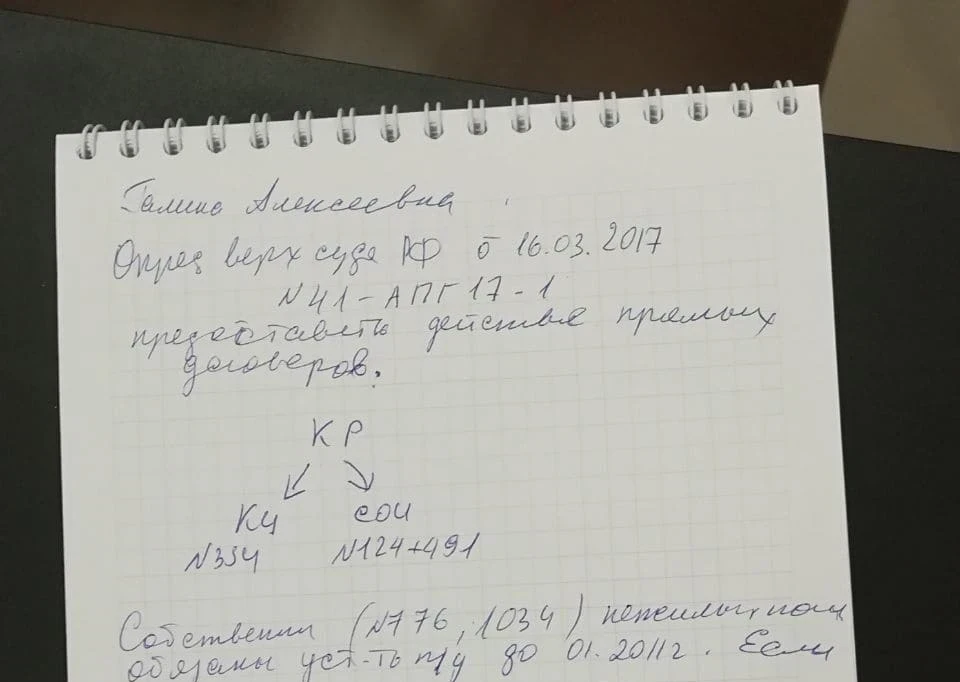 Галина Алексеевна
Опред верх суда РФ о 16.03.2017
N41-АПГ17-1
предоставить действие прямых
договоров.
КР
КУ СОИ
N354 N124+491
Собственники (N776, 1034) нежилых пом
обязаны уст-ть п/у до 01.2011г. Если